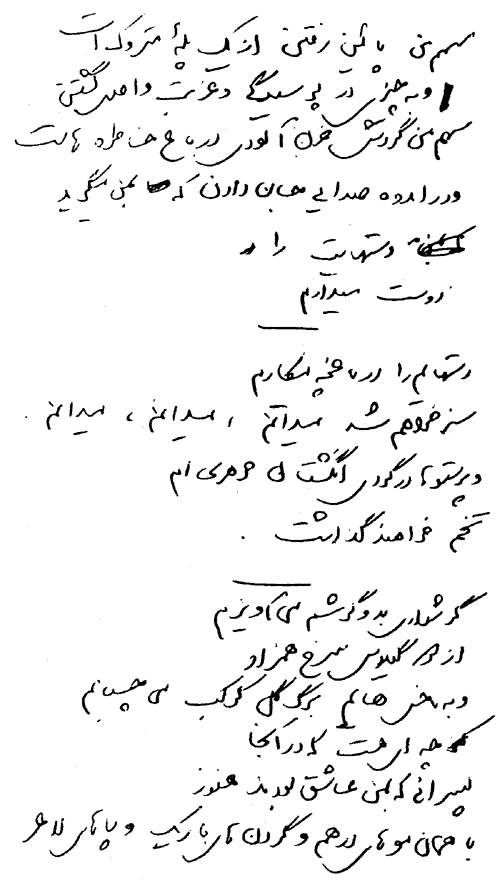 سهم من پائین رفتن از یک پلهٔ متروک است
و به چیزی در پوسیدگی و غربت واصل گشتن
سهم من گردش حزن آلودی در باغ خاطره هاست
و در اندوه صدایی جان دادن که بمن میگوید
دستهایت را
دوست میدارم
دستهایم را در باغچه میکارم
سبز خواهم شد میدانم ، میدانم ، میدانم .
و پرستوها در گودی انگشتان جوهری ام
تخم خواهند گذاشت .
گوشواری بدو گوشم می آویزم
از دو گیلاس سرخ همزاد
و به ناخن هایم برگ گل کوکب می چسبانم
کوچه ای هست که در آنجا
پسرانی که بمن عاشق بودند هنوز
با همان موهای درهم و گردن های باریک و پاهای لاغر